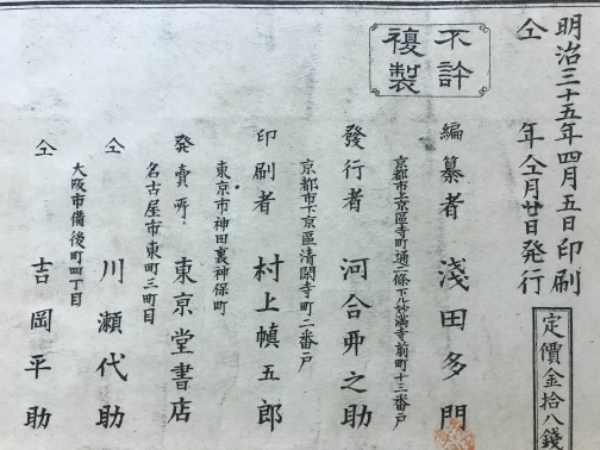 明治三十五年四月五日印刷
仝年仝月廿日発行
定價金拾八錢
不許
複製
編纂者 淺田多門
京都市上京區寺町通二條下ル妙滿寺前町十三番戸
發行者 河合卯之助
京都市下京區清閑寺町二番戸
印刷者 村上幀五郎
東京市神田裏神保町
発賣所 東京堂書店
名古屋市東町三町目
仝 川瀬代助
大阪市備後町四丁目
仝 吉岡平助